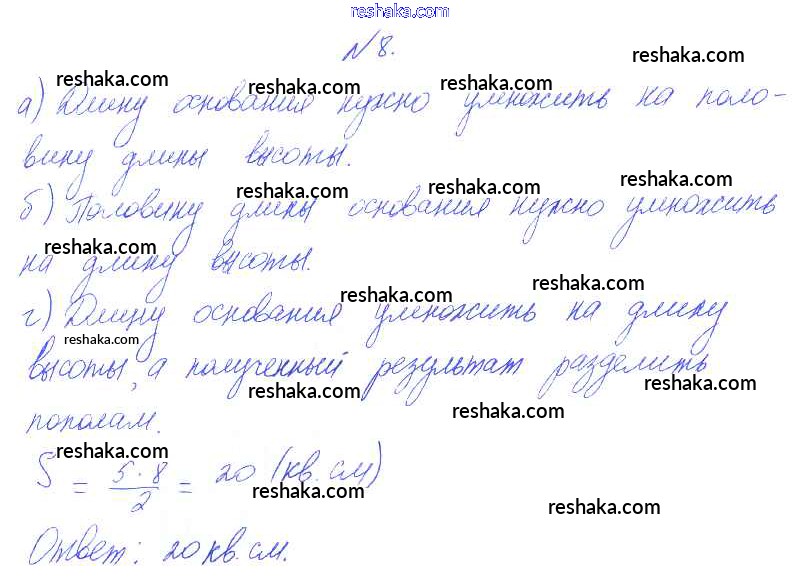 reshaka.com
№8.
reshaka.com
reshaka.com
reshaka.com
reshaka.com
а) Длину основания нужно умножить на поло-
вину длины высоты.
reshaka.com
reshaka.com
reshaka.com
б) Половину длины основания нужно умножить
reshaka.com
на длину высоты.
reshaka.com
reshaka.com
г) Длину основания умножить на длину
reshaka.com
высоты, а полученный результат разделить
reshaka.com
reshaka.com
reshaka.com
пополам.
reshaka.com
S = 5·8/2 = 20 (кв. см)
reshaka.com
reshaka.com
Ответ: 20 кв. см.